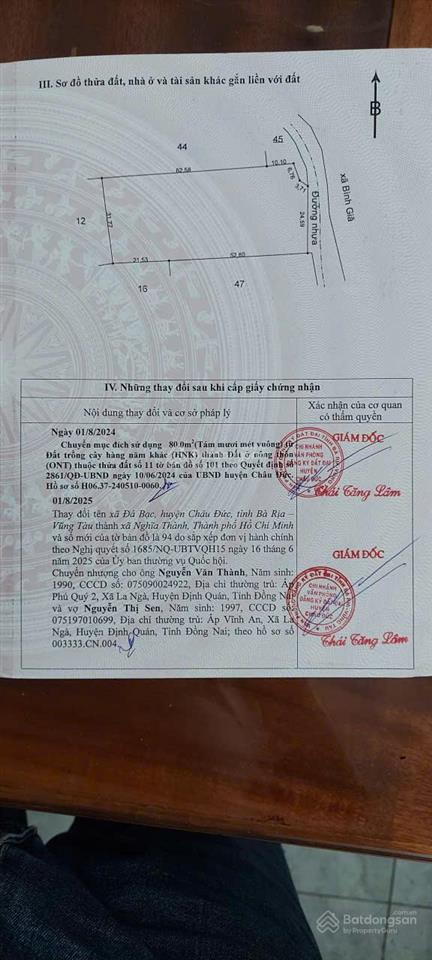 III. Sơ đồ thửa đất, nhà ở và tài sản khác gắn liền với đất
B
44
45
62.58
10.10
6.76
3.71
xã Bình Giã
Đường nhựa
24.59
31.77
12
21.53
52.80
16
47
IV. Những thay đổi sau khi cấp giấy chứng nhận
Nội dung thay đổi và cơ sở pháp lý
Xác nhận của cơ quan
có thẩm quyền
Ngày 01/8/2024
Chuyển mục đích sử dụng 80.0m² (Tám mươi mét vuông) từ
Đất trồng cây hàng năm khác (HNK) thành Đất ở nông thôn
(ONT) thuộc thửa đất số 11 tờ bản đồ số 101 theo Quyết định số
2861/QĐ-UBND ngày 10/06/2024 của UBND huyện Châu Đức.
Hồ sơ số H06.37-240510-0060.
GIÁM ĐỐC
CHI NHÁNH
VĂN PHÒNG
ĐĂNG KÝ ĐẤT ĐAI
HUYỆN
CHÂU ĐỨC
Thái Tăng Lâm
01/8/2025
Thay đổi tên xã Đá Bạc, huyện Châu Đức, tỉnh Bà Rịa –
Vũng Tàu thành xã Nghĩa Thành, Thành phố Hồ Chí Minh
và số mới của tờ bản đồ là 94 do sắp xếp đơn vị hành chính
theo Nghị quyết số 1685/NQ-UBTVQH15 ngày 16 tháng 6
năm 2025 của Ủy ban thường vụ Quốc hội.
Chuyển nhượng cho ông Nguyễn Văn Thành, Năm sinh:
1990, CCCD số: 075090024922, Địa chỉ thường trú: Ấp
Phú Quý 2, Xã La Ngà, Huyện Định Quán, Tỉnh Đồng Nai
và vợ Nguyễn Thị Sen, Năm sinh: 1997, CCCD số:
075197010699, Địa chỉ thường trú: Ấp Vĩnh An, Xã La
Ngà, Huyện Định Quán, Tỉnh Đồng Nai; theo hồ sơ số
003333.CN.004
GIÁM ĐỐC
CHI NHÁNH
VĂN PHÒNG
ĐĂNG KÝ ĐẤT ĐAI
HUYỆN
CHÂU ĐỨC
Thái Tăng Lâm
Batdongsan
.com.vn
by PropertyGuru